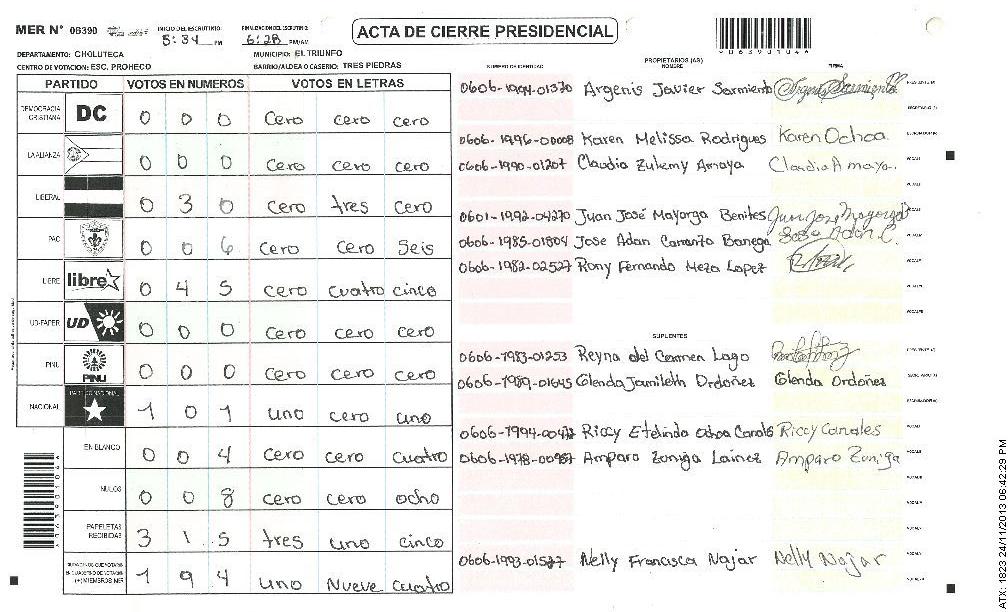 MER N° 06390
INICIO DEL ESCRUTINIO:
5:34 PM
FINALIZACION DEL ESCRUTINIO:
6:28 PM/AM
ACTA DE CIERRE PRESIDENCIAL
0 6 3 9 0 1 0 4
DEPARTAMENTO: CHOLUTECA
MUNICIPIO: EL TRIUNFO
CENTRO DE VOTACION: ESC. PROHECO
BARRIO/ALDEA O CASERIO: TRES PIEDRAS
PARTIDO VOTOS EN NUMEROS VOTOS EN LETRAS
DEMOCRACIA CRISTIANA DC 0 0 0 Cero cero cero
LA ALIANZA 0 0 0 Cero cero cero
LIBERAL 0 3 0 cero tres cero
PAC 0 0 6 cero Cero Seis
LIBRE libre 0 4 5 cero cuatro cinco
UD-FAPER UD 0 0 0 Cero cero cero
PINU PINU 0 0 0 Cero cero cero
NACIONAL 1 0 1 uno cero uno
EN BLANCO 0 0 4 Cero cero cuatro
NULOS 0 0 8 cero cero ocho
PAPELETAS RECIBIDAS 3 1 5 tres uno cinco
1 9 4 uno Nueve cuatro
NUMERO DE IDENTIDAD
PROPIETARIOS (AS)
NOMBRE
FIRMA
0606-1994-01370 Argenis Javier Sarmiento Argenis Sarmiento
0606-1996-00008 Karen Melissa Rodrigues Karen Ochoa
0606-1990-01207 Claudia Zulemy Amaya Claudia Amaya.
0601-1992-04270 Juan José Mayorga Benites Juan José Mayorga B
0606-1985-01804 Jose Adan Carranza Banega Jose Adan C.
0606-1982-02527 Rony Fernando Meza Lopez
SUPLENTES
0606-1983-01253 Reyna del Carmen Lago
0606-1989-01645 Glenda Jamileth Ordoñez Glenda Ordoñez
0606-1994-00472 Riccy Etelinda Ochoa Canales Riccy Canales
0606-1978-00987 Amparo Zuniga Lainez Amparo Zuniga
0606-1993-01527 Nelly Francisca Najar Nelly Najar
ATX: 1823 24/11/2013 06:42:29 PM